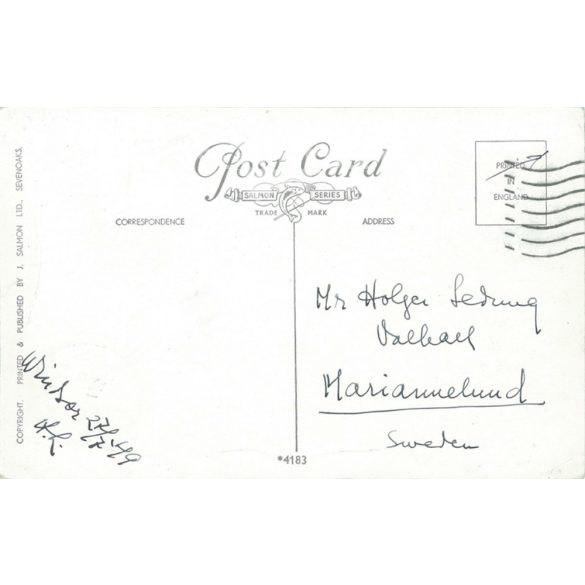 Post Card
SALMON SERIES
TRADE MARK
CORRESPONDENCE
ADDRESS
PRINTED
IN
ENGLAND
COPYRIGHT. PRINTED & PUBLISHED BY J. SALMON LTD., SEVENOAKS.
Mr Holger
Valhall
Mariannelund
Sweden
Windsor 27/7 -49
*4183